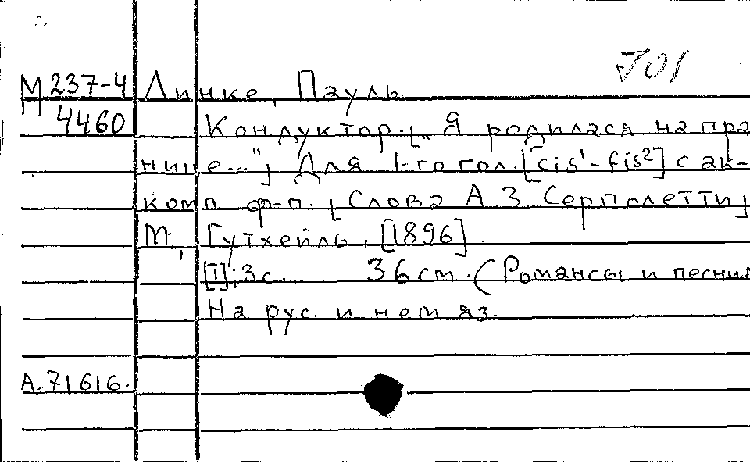 701
М 237-4 Линке, Пауль
4460 Кондуктор. ["Я родилася на пра
нице..."] Для 1-го гол. [cis¹-fis²] с ак-
комп. ф-п. [Слова А. З. Серполетти]
М., Гутхейль, [1896]
[1], 3 с. 36 см. (Романсы и песни
На рус. и нем яз.
А.71616.